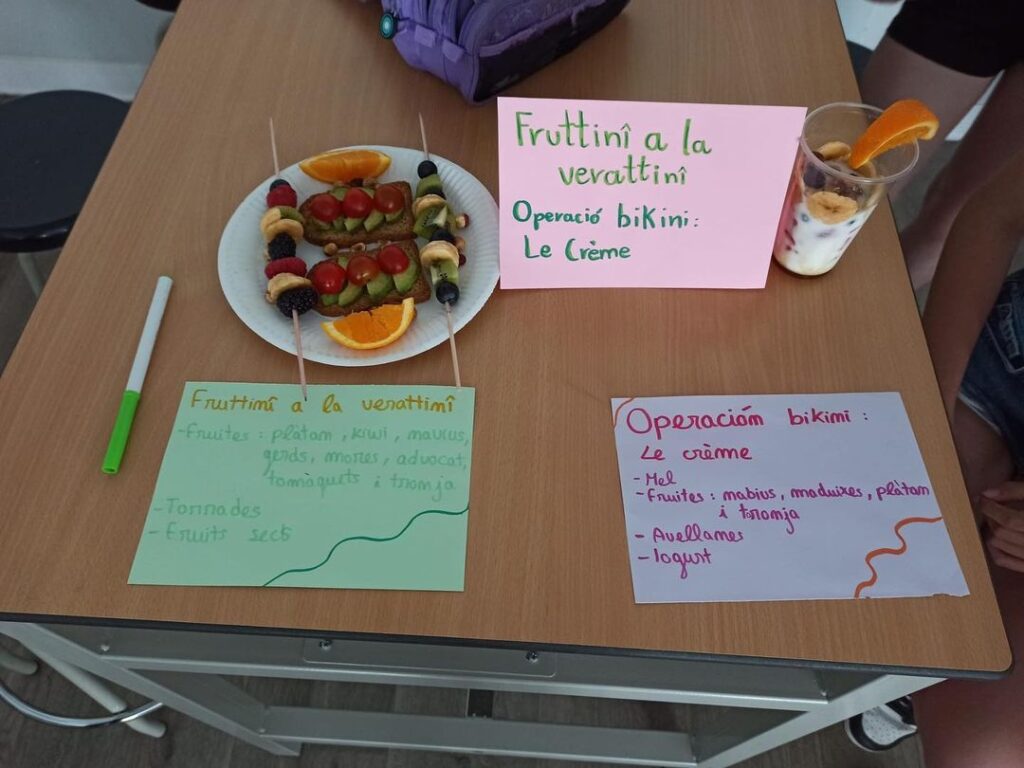 Fruttinî a la
verattinî
Operació bikini:
Le Crème
Fruttinî a la verattinî
-Fruites: plàtam, kiwi, navius,
gerds, mores, advocat,
tomàquets i tronja
-Torrades
-Fruits secs
Operación bikini:
Le crème
-Mel
-Fruites: nabius, maduixes, plàtam
i tronja
-Avellanes
-Iogurt